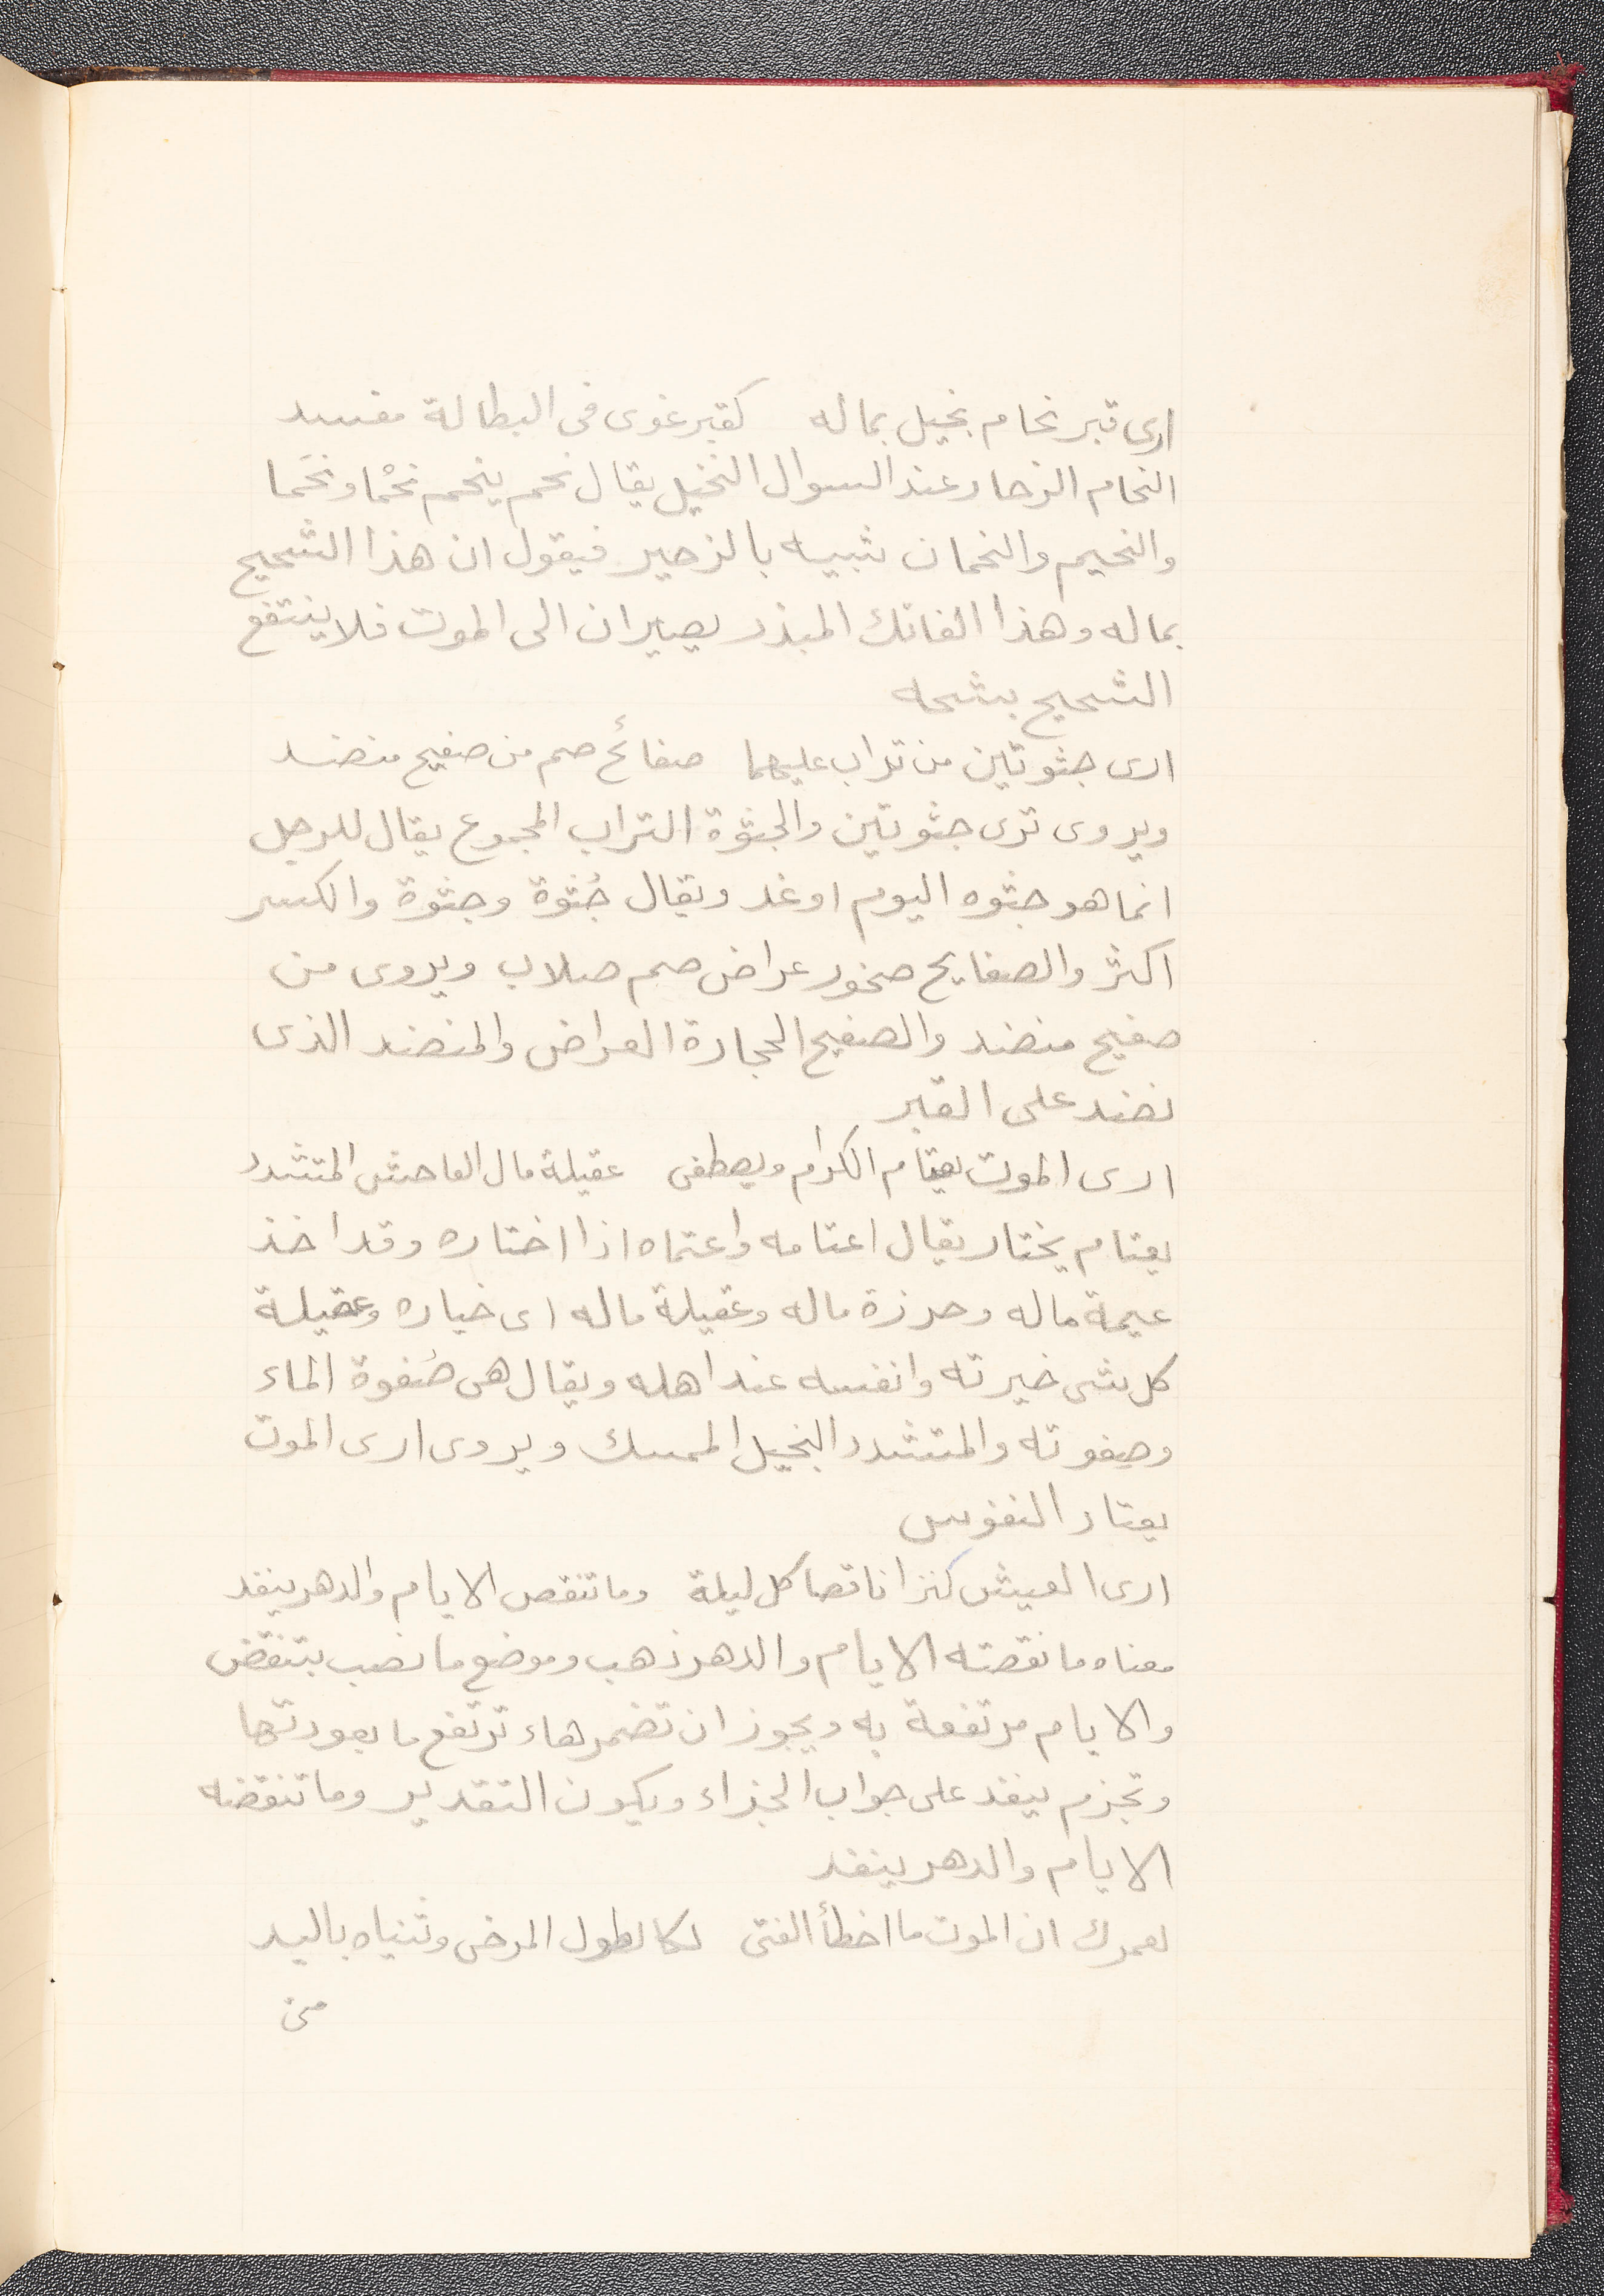 ارى قبر نحام بخيل بماله كقبر غوى فى البطالة مفسد
النحام الزحار عند السوال النخيل يقال نحم ينحم نحْما ونحَما
والنحيم والنحمان شبيه بالزحير فيقول ان هذا الشحيح
بماله وهذا الفاتك المبذر يصيران الى الموت فلا ينتفع
الشحيح بشحه
ارى جثوتين من تراب عليهما صفائح صم من صفيح منضد
ويروى ترى جثوتين والجثوة التراب المجموع يقال للرجل
انما هو جثوه اليوم او غد ويقال جُثوة وجثوة والكسر
اكثر والصفايح صخور عراض صم صلاب ويروى من
صفيح منضد والصفيح الحجارة العراض والمنضد الذى
نضد على القبر
ارى الموت يعتام الكرام ويصطفى عقيلة مال الفاحش المتشدد
يعتام يختار يقال اعتامه واعتماه اذا اختاره وقد اخذ
عيمة ماله وحرزة ماله وعقيلة ماله اى خياره وعقيلة
كل شى خيرته وانفسه عند اهله ويقال هى صُفوة الماء
وصفوته والمتشدد البخيل الممسك ويروى ارى الموت
يعتاد النفوس
ارى العيش كنزا ناقصا كل ليلة وما تنقص الايام والدهر ينفد
معناه ما نقصته الايام والدهر ذهب وموضع ما نصب بتنقض
والايام مرتفعة به ويجوز ان تضمر هاء ترتفع ما بعودتها
وتجزم ينفد على جواب الجزاء ويكون التقدير وما تنقضه
الايام والدهر ينفد
لعمرك ان الموت ما اخطأ الفتى لكا لطول المرخى وثنياه باليد
من